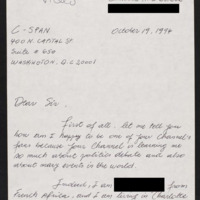 C-SPAN
October 19, 1994
400 N. CAPITAL ST.
Suite # 650
WASHINGTON. D.C 20001
Dear Sir.
First of all, let me tell you
how am I happy to be one of your channel's
fans because your channel is learning me
so much about politics debate and also
about many events in the world.
Indeed, I am from
French Africa, and I am living in Charlotte